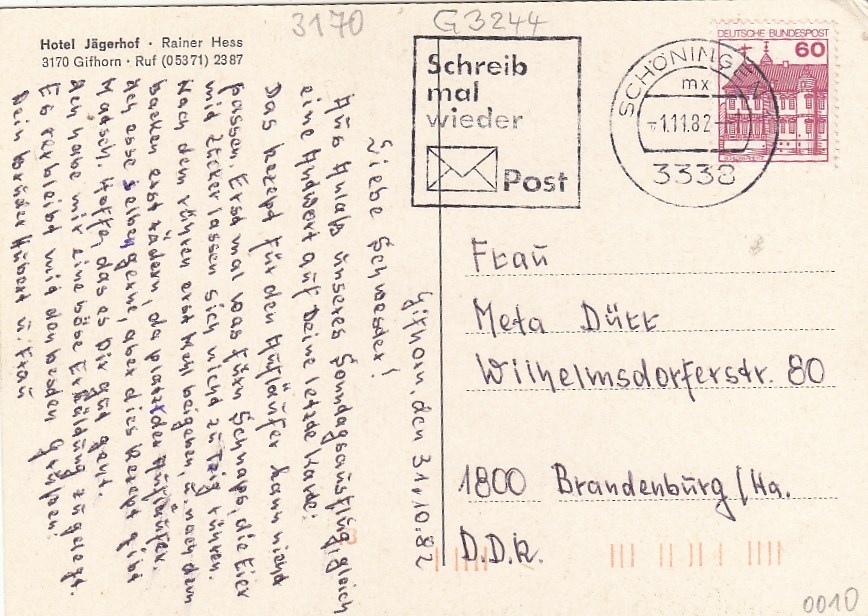 3170 G3244
Hotel Jägerhof · Rainer Hess
3170 Gifhorn · Ruf (05371) 2387
Schreib
mal
wieder
Post
DEUTSCHE BUNDESPOST
60
SCHÖNINGEN
mx
-1.11.82
3338
Gifhorn, den 31.10.82
Liebe Schwester!
Aus Anlaß unseres Sonndagsausflug, gleich
eine Andwort auf Deine letzde Karte:
Das Rezept für den Aufläufer kann nicht
passen. Erst mal was fürn Schnaps, die Eier
mid Zucker lassen sich nicht zu Teig rühren.
Nach dem rühren erst Meh beigeben, u. nach dem
backen erst rädern, da platzt der Aufläufer.
Ich esse selber gerne, aber dies Rezept gibt
Matsch. Hoffe, das es Dir gut geht.
Ich habe mir eine böse Erkäldung zugelegt.
Es verbleibt mid den besden Grüßen!
Dein Bruder Hubert u. Frau
Frau
Meta Dükk
Wilhelmsdorferstr. 80
1800 Brandenburg/Ha.
D.D.R.
0010